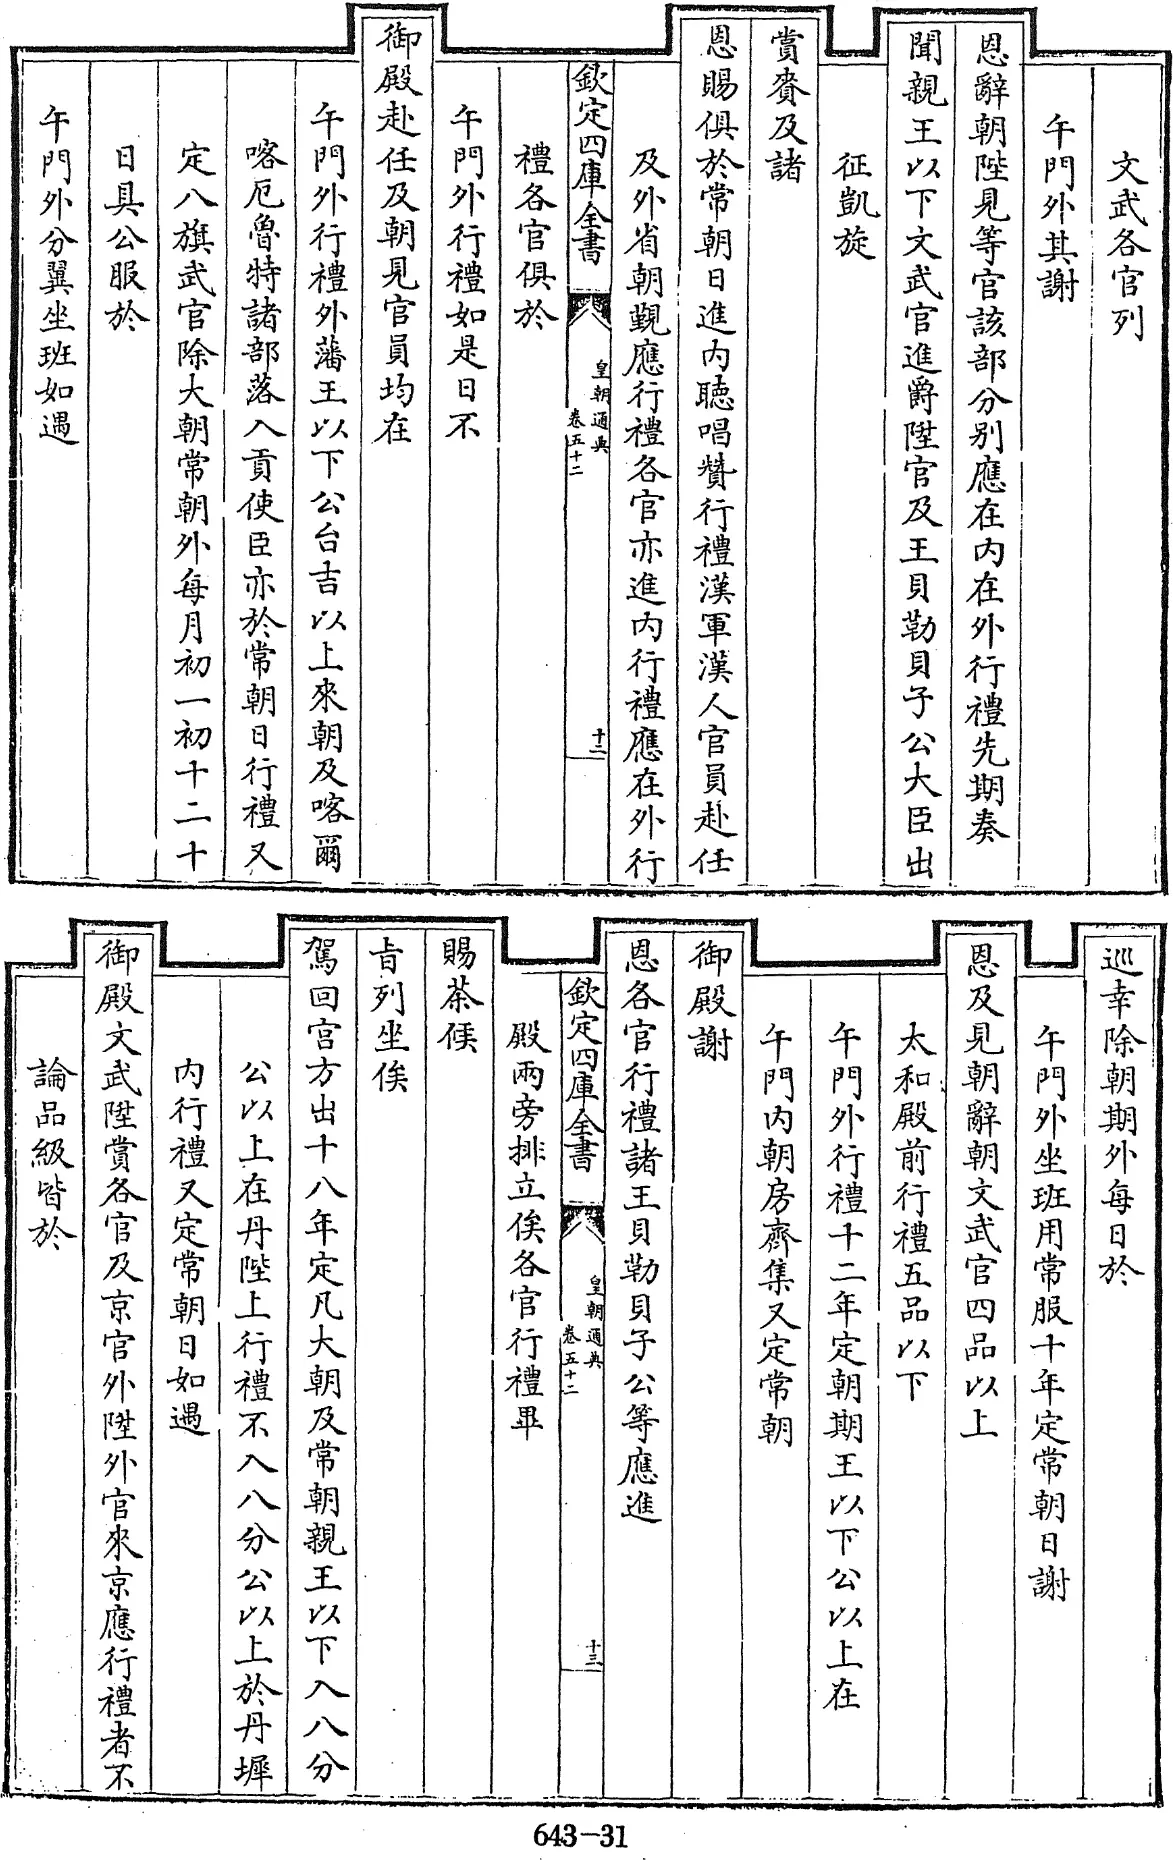 文武各官列
午門外其謝
恩辭朝陛見等官該部分别應在内在外行禮先期奏
聞親王以下文武官進爵陞官及王貝勒貝子公大臣出
征凱旋
賞賚及諸
恩賜俱於常朝日進内聽唱贊行禮漢軍漢人官員赴任
及外省朝覲應行禮各官亦進内行禮應在外行
欽定四庫全書
皇朝通典
卷五十二
十二
禮各官俱於
午門外行禮如是日不
御殿赴任及朝見官員均在
午門外行禮外藩王以下公台吉以上來朝及喀爾
喀厄魯特諸部落入貢使臣亦於常朝日行禮又
定八旗武官除大朝常朝外每月初一初十二十
日具公服於
午門外分翼坐班如遇
巡幸除朝期外每日於
午門外坐班用常服十年定常朝日謝
恩及見朝辭朝文武官四品以上
太和殿前行禮五品以下
午門外行禮十二年定朝期王以下公以上在
午門内朝房齊集又定常朝
御殿謝
恩各官行禮諸王貝勒貝子公等應進
欽定四庫全書
皇朝通典
卷五十二
十三
殿兩旁排立俟各官行禮畢
賜茶候
旨列坐俟
駕回宫方出十八年定凡大朝及常朝親王以下入八分
公以上在丹陛上行禮不入八分公以上於丹墀
内行禮又定常朝日如遇
御殿文武陞賞各官及京官外陞外官來京應行禮者不
論品級皆於
643-31